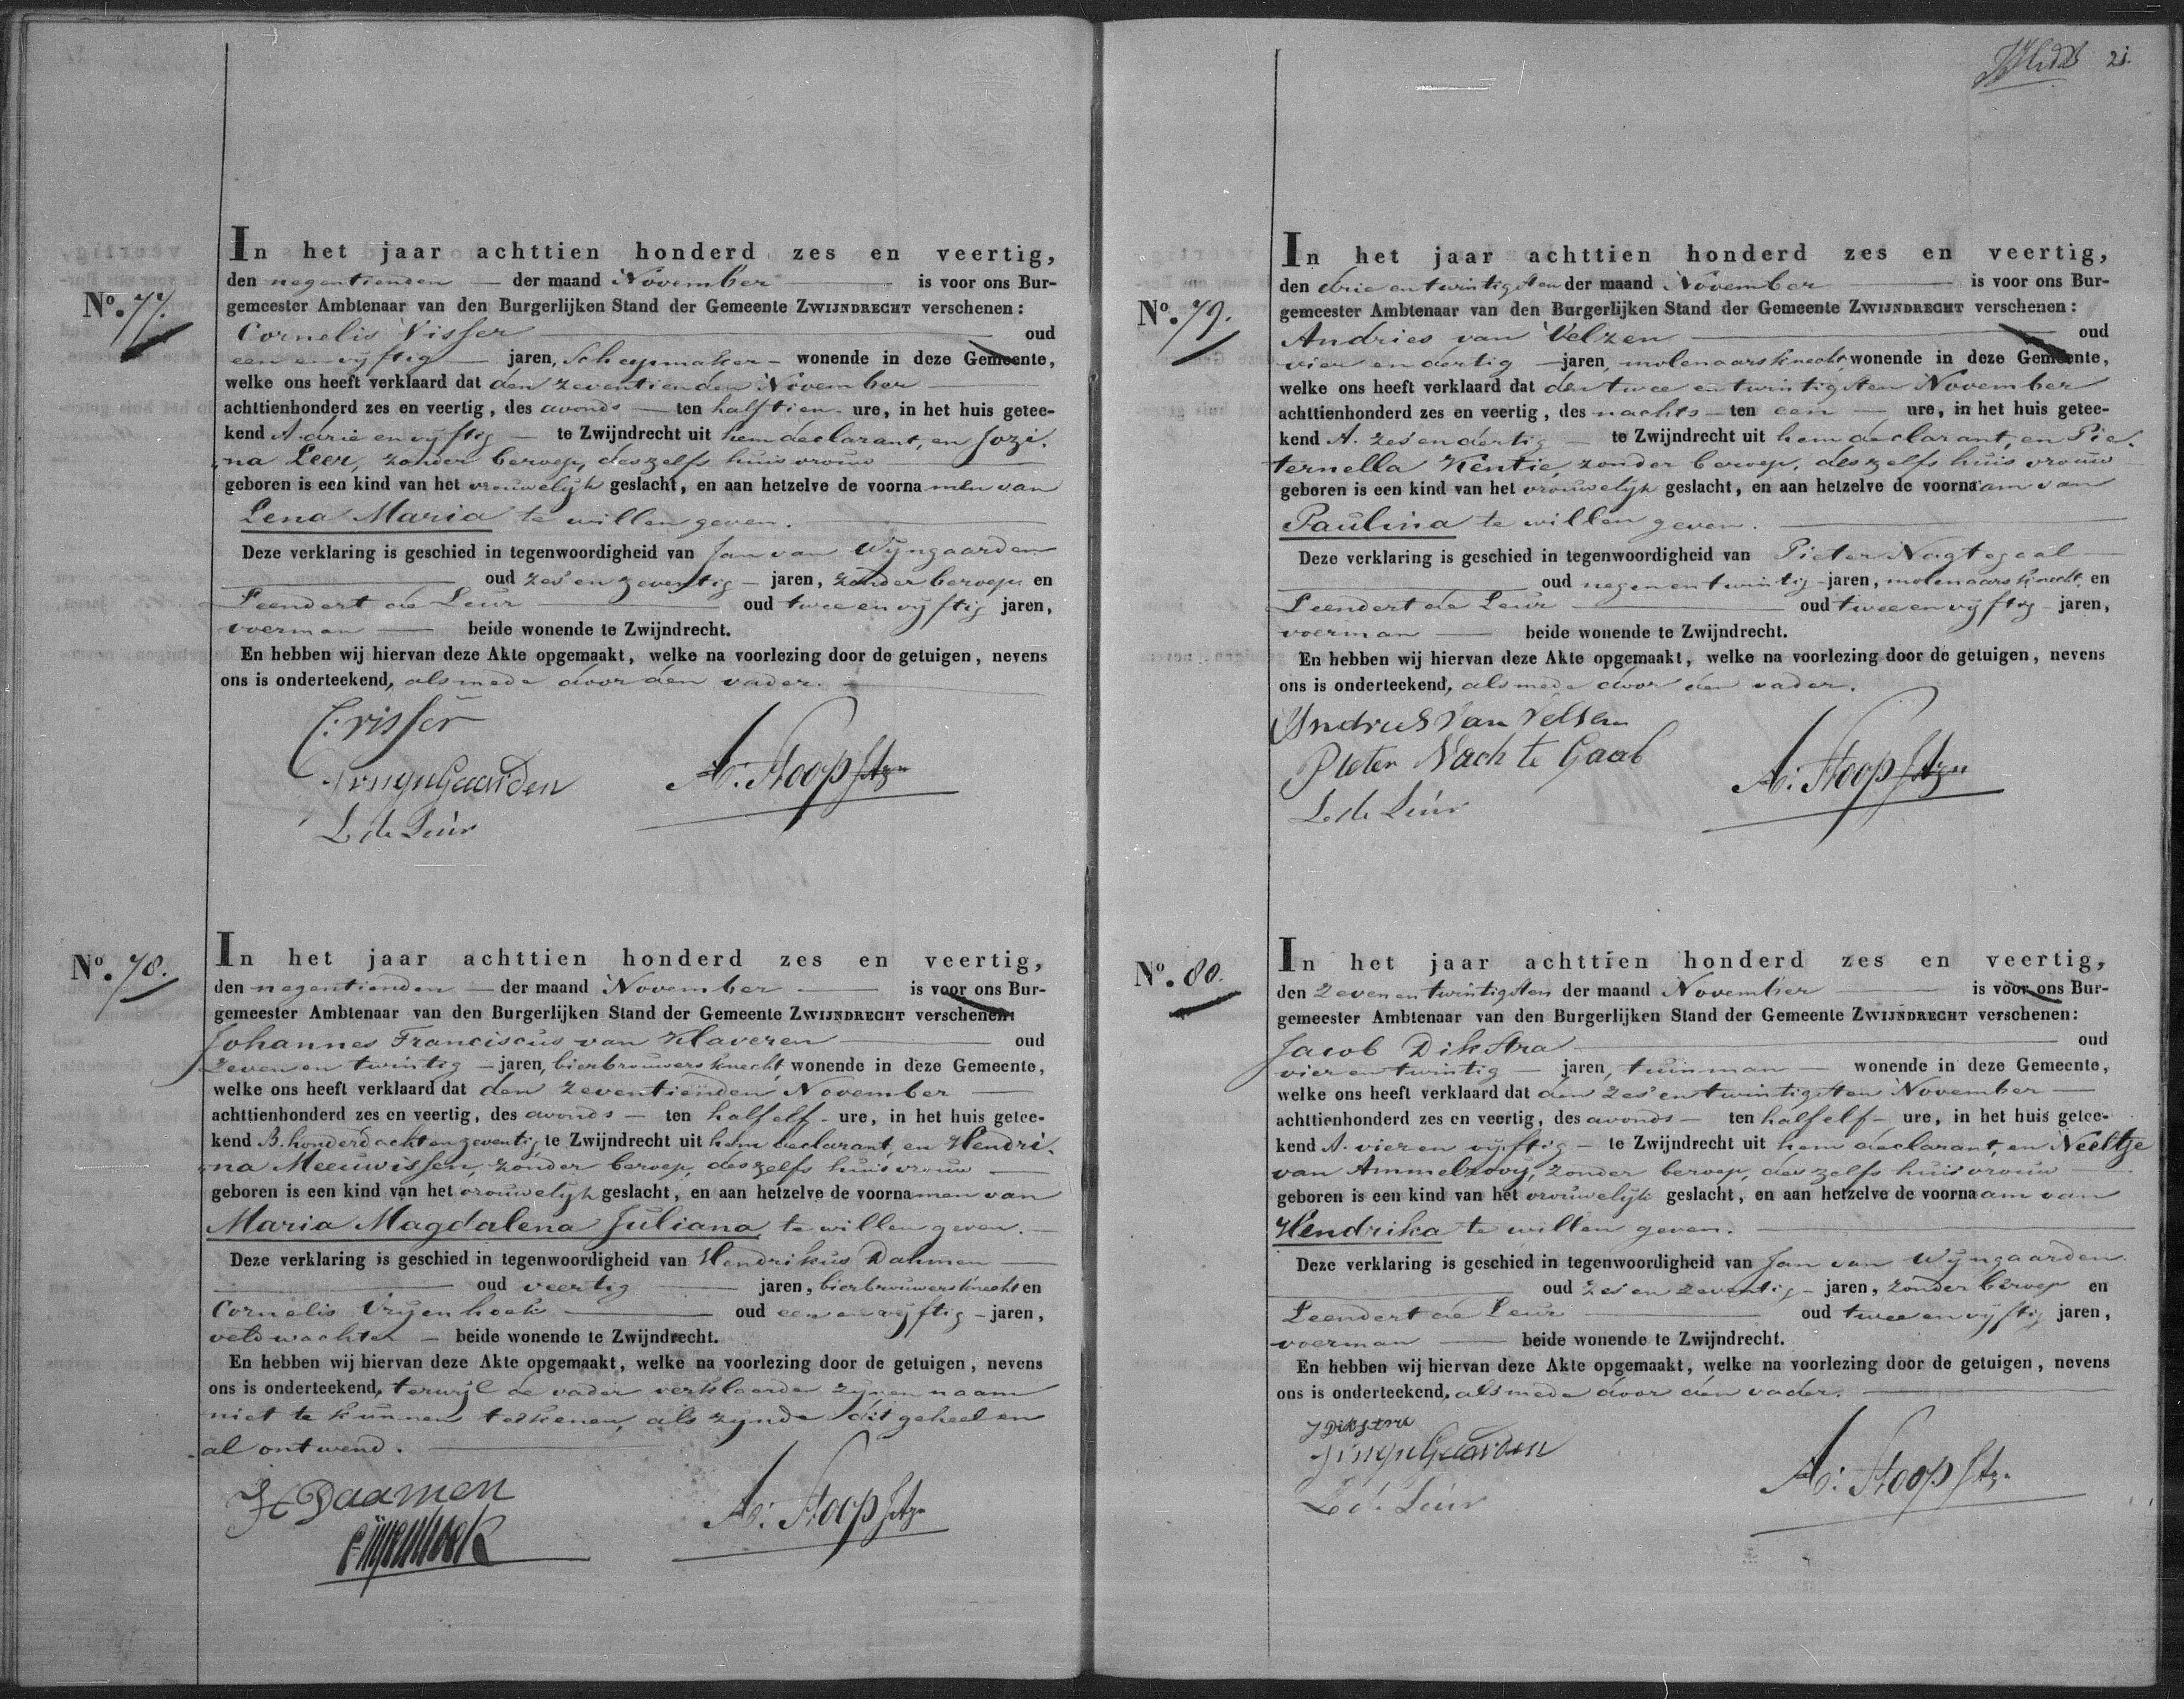 In het jaar achttien honderd zes en veertig,
den negentienden der maand November is voor ons Bur-
No. 77. gemeester Ambtenaar van den Burgerlijken Stand der Gemeente ZWIJNDRECHT verschenen:
Cornelis Visser oud
een en vijftig jaren, Scheepmaker wonende in deze Gemeente,
welke ons heeft verklaard dat den zeventienden November
achttienhonderd zes en veertig, des avonds ten half tien ure, in het huis getee-
kend A drie en vijftig te Zwijndrecht uit hem declarant, en Jozi-
na Leer, zonder beroep, deszelfs huisvrouw
geboren is een kind van het vrouwelijk geslacht, en aan hetzelve de voornamen van
Lena Maria te willen geven.
Deze verklaring is geschied in tegenwoordigheid van Jan van Wijngaarden
oud zes en zeventig jaren, zonder beroep en
Leendert de Leur oud twee en vijftig jaren,
voerman beide wonende te Zwijndrecht.
En hebben wij hiervan deze Akte opgemaakt, welke na voorlezing door de getuigen, nevens
ons is onderteekend, alsmede door den vader.
C. visser
JvwynGaarden A: Stoop Jtzn
L de Leur
In het jaar achttien honderd zes en veertig,
No. 78. den negentienden der maand November is voor ons Bur-
gemeester Ambtenaar van den Burgerlijken Stand der Gemeente ZWIJNDRECHT verschenen:
Johannes Franciscus van Klaveren oud
zeven en twintig jaren, bierbrouwersknecht wonende in deze Gemeente,
welke ons heeft verklaard dat den zeventienden November
achttienhonderd zes en veertig, des avonds ten half elf ure, in het huis getee-
kend B. honderd acht en zeventig, te Zwijndrecht uit hem declarant, en Hendri-
na Meeuwissen, zonder beroep, deszelfs huisvrouw
geboren is een kind van het vrouwelijk geslacht, en aan hetzelve de voornamen van
Maria Magdalena Juliana te willen geven.
Deze verklaring is geschied in tegenwoordigheid van Hendrikus Dahmen
oud veertig jaren, bierbrouwersknecht en
Cornelis Vrijenhoek oud een en vijftig jaren,
veldwachter beide wonende te Zwijndrecht.
En hebben wij hiervan deze Akte opgemaakt, welke na voorlezing door de getuigen, nevens
ons is onderteekend, terwijl de vader verklaarde zijnen naam
niet te kunnen teekenen, als zijnde dit geheel en
al ontwend.
H Daamen
A: Stoop Jtzn
21.
In het jaar achttien honderd zes en veertig,
den drie en twintigsten der maand November is voor ons Bur-
No. 79. gemeester Ambtenaar van den Burgerlijken Stand der Gemeente ZWIJNDRECHT verschenen:
Andries van Velzen oud
vier en dertig jaren, molenaarsknecht, wonende in deze Gemeente,
welke ons heeft verklaard dat den twee en twintigsten November
achttienhonderd zes en veertig, des nachts ten een ure, in het huis getee-
kend A. zes en dertig te Zwijndrecht uit hem declarant, en Pie-
ternella Kentie, zonder beroep, deszelfs huisvrouw
geboren is een kind van het vrouwelijk geslacht, en aan hetzelve de voornaam van
Paulina te willen geven.
Deze verklaring is geschied in tegenwoordigheid van Pieter Nagtegaal
oud negen en twintig jaren, molenaarsknecht, en
Leendert de Leur oud twee en vijftig jaren,
voerman beide wonende te Zwijndrecht.
En hebben wij hiervan deze Akte opgemaakt, welke na voorlezing door de getuigen, nevens
ons is onderteekend, alsmede door den vader.
Andries Van Velsen
Pieter Nach te Gaal A: Stoop Jtzn
L de Leur
In het jaar achttien honderd zes en veertig,
No. 80. den zeven en twintigsten der maand November is voor ons Bur-
gemeester Ambtenaar van den Burgerlijken Stand der Gemeente ZWIJNDRECHT verschenen:
Jacob Dikstra oud
vier en twintig jaren, tuinman wonende in deze Gemeente,
welke ons heeft verklaard dat den zes en twintigsten November
achttienhonderd zes en veertig, des avonds ten half elf ure, in het huis getee-
kend A. vier en vijftig te Zwijndrecht uit hem declarant, en Neeltje
van Ammelrooy, zonder beroep, deszelfs huisvrouw
geboren is een kind van het vrouwelijk geslacht, en aan hetzelve de voornaam van
Hendrika te willen geven.
Deze verklaring is geschied in tegenwoordigheid van Jan van Wijngaarden
oud zes en zeventig jaren, zonder beroep en
Leendert de Leur oud twee en vijftig jaren,
voerman beide wonende te Zwijndrecht.
En hebben wij hiervan deze Akte opgemaakt, welke na voorlezing door de getuigen, nevens
ons is onderteekend, alsmede door den vader.
J Dikstra
JvwynGaarden A: Stoop Jtzn
L de Leur